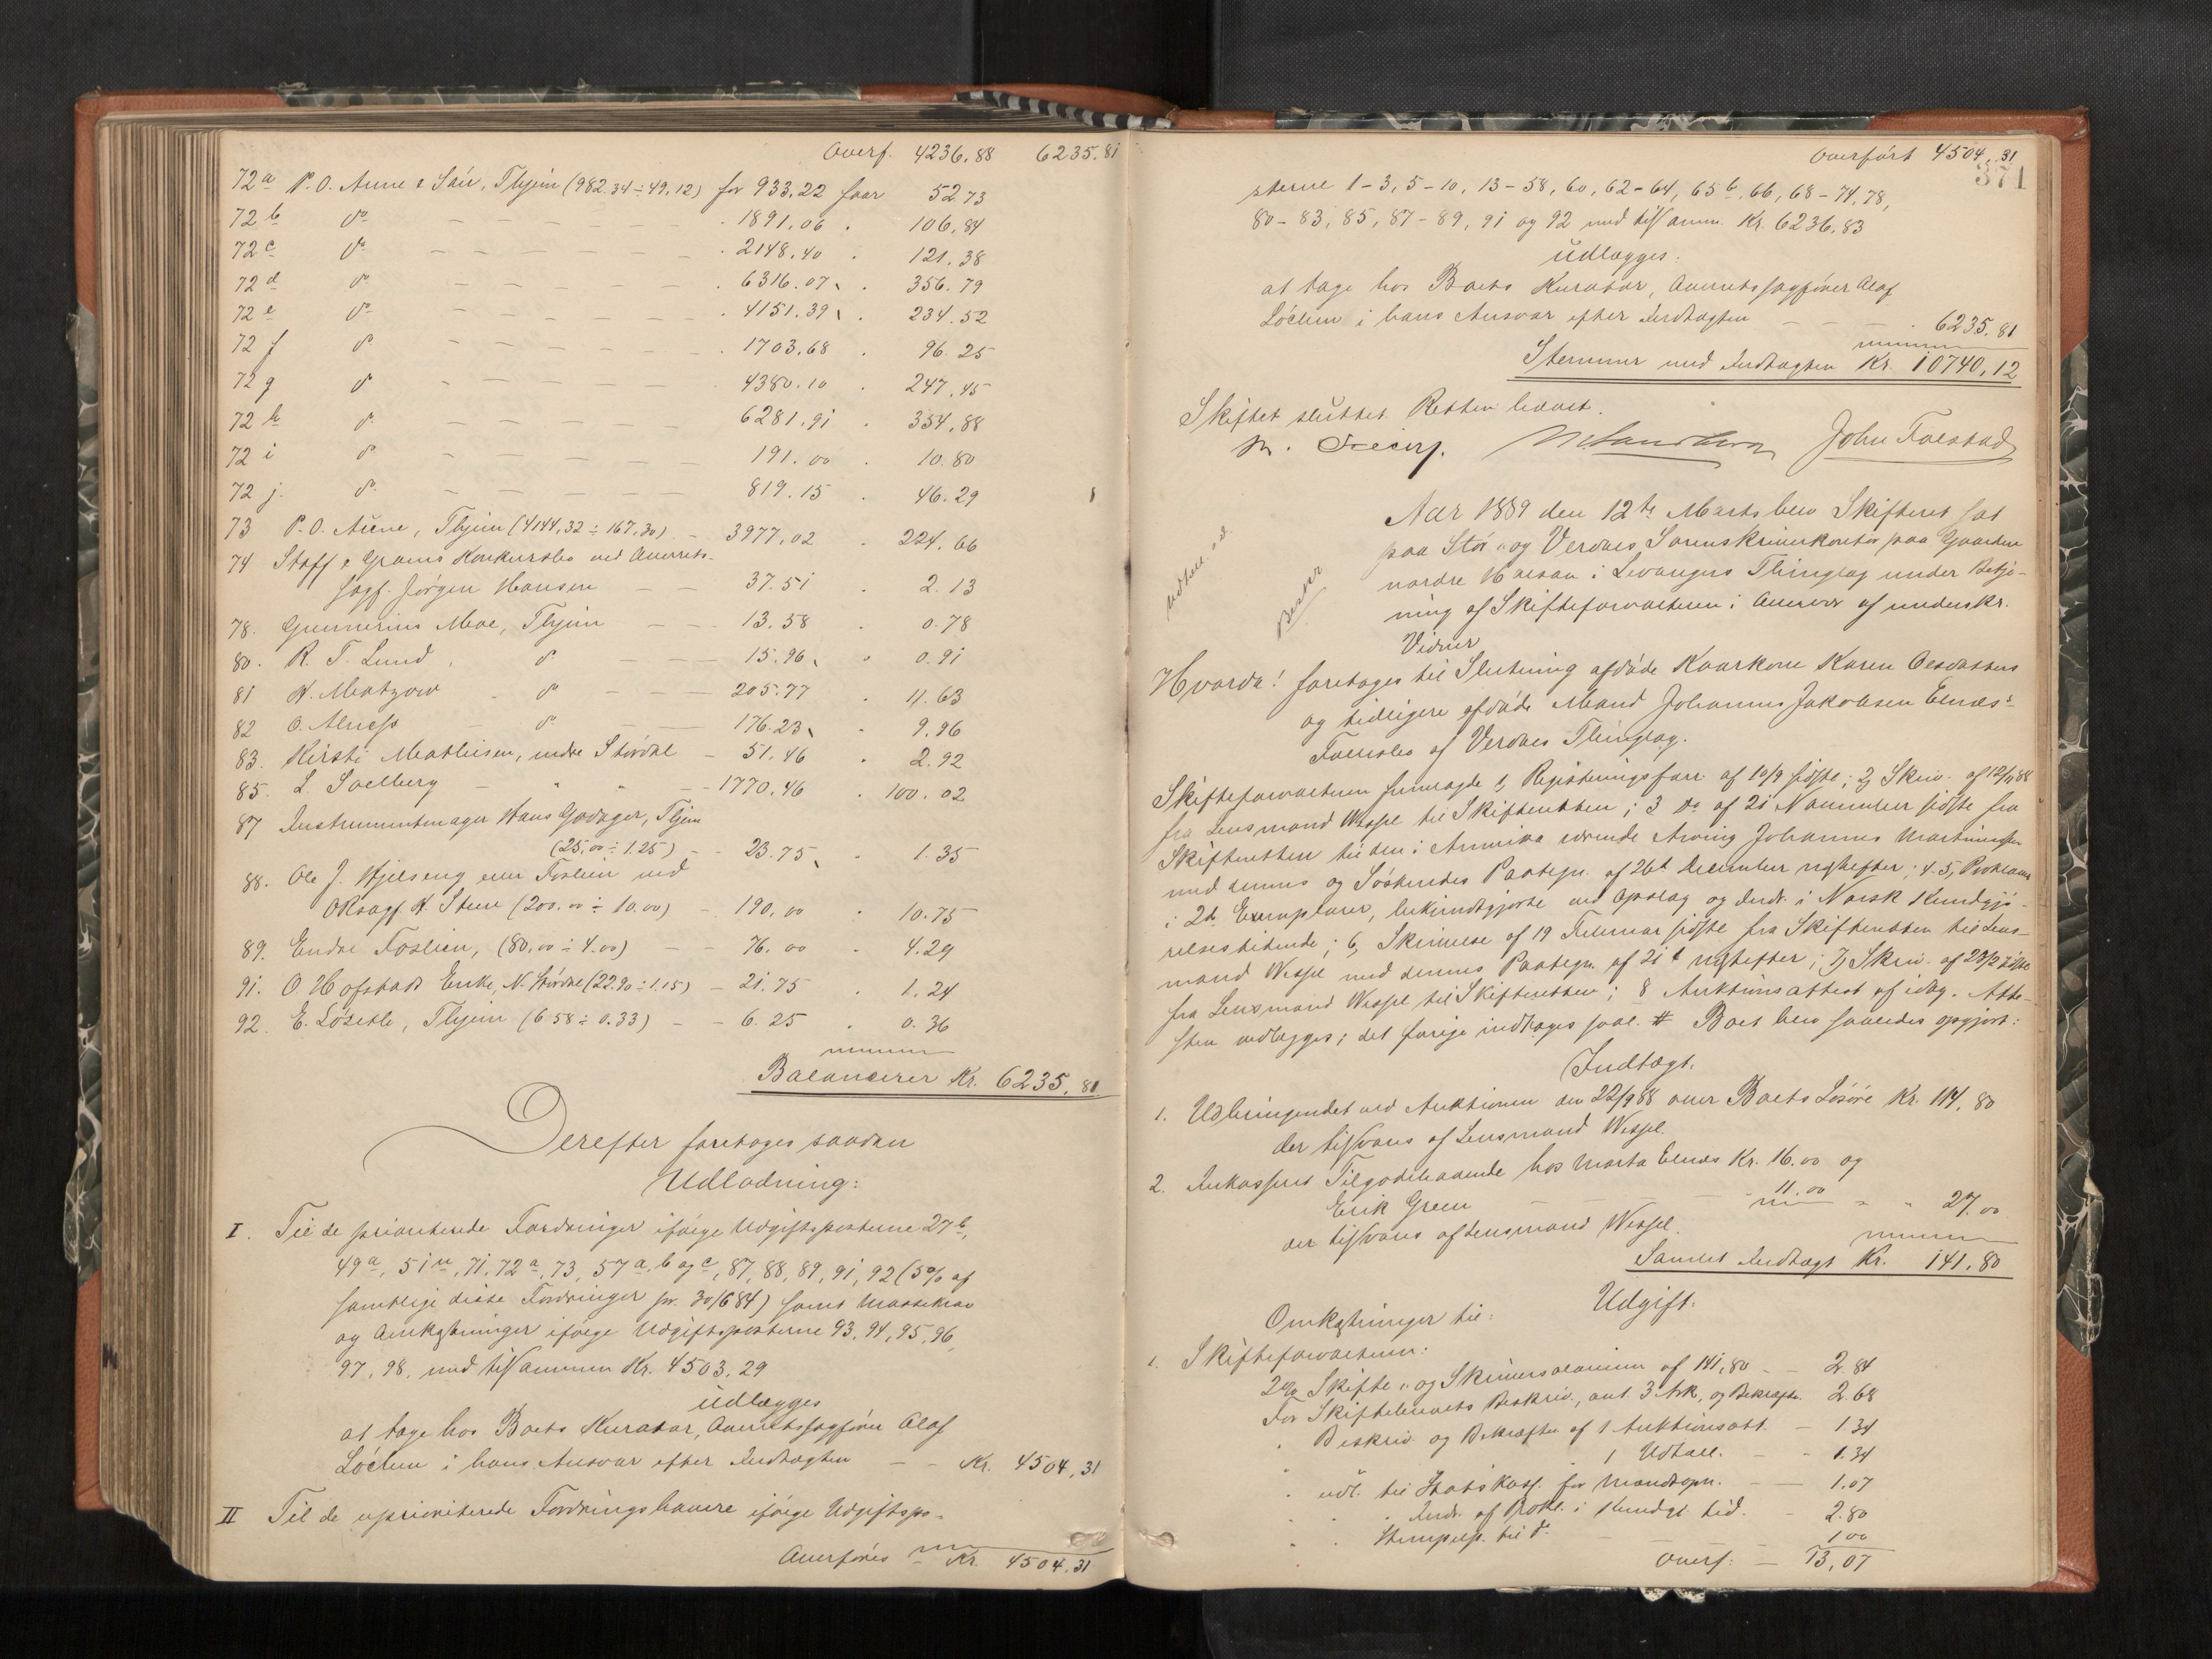 Overf. 4236.88 6235.81
72 a P. O. Aune & Søn, Thjem (982.34 ÷ 49.12) for 933.22 faar 52.73
72 b do - - - - - - 1891.06 . 106.84
72 c do - - - - - - 2148.40 . 121.38
72 d do - - - - - - 6316.07 . 356.79
72 e do - - - - - - 4151.39 . 234.52
72 f do - - - - - - 1703.68 . 96.25
72 g do - - - - - - 4380.10 . 247.45
72 h do - - - - - - 6281.91 . 354.88
72 i do - - - - - - 191.00 . 10.80
72 j. do - - - - - - 819.15 . 46.29
73 P. O. Aune, Thjem (4144,32 ÷ 167,30) - 3977.02 . 224.66
74 Staff & Grams Konkursbo ved Overrets-
sagf. Jørgen Hansen - - 37.51 . 2.13
78. Gunnerius Moe, Thjem - - - 13.58 . 0.78
80. R. T. Lund, do - - - 15.96 . 0.91
81 H. Matzow - do - - - 205.77 . 11.63
82 O. Alness - do - - 176.23 . 9.96
83. Kirsti Mathisen, nedre Stördal - 51.46 . 2.92
85. L. Solberg - " " - 1770.46 . 100.02
87 Instrumentmager Hans Godager, Thjem
(25,00 ÷ 1.25) - - 23.75 . 1.35
88. Ole J. Hjelseng eller Foslien ved
OKsagf. K. Steen (200.00 ÷ 10.00) - 190,00 . 10.75
89. Endre Foslien, (80,00 ÷ 4.00) - - 76.00 . 4.29
91. O Hofstads Enke, N. Stördal (22.90 ÷ 1.15) - 21.75 . 1.24
92. E. Løseth, Thjem (6 58 ÷ 0.33) - - 6.25 . 0.36
Balancerer Kr. 6235.81
Derefter foretages saadan
Udlodning:
I. Til de prioriterede Fordringer ifølge Udgiftsposterne 27 b,
49 a, 51 n, 71, 72 a, 73, 57 a, b og c, 87, 88, 89, 91, 92 (5% af
samtlige disse Fordringer pr. 30/6 84) samt Massekrav
og Omkostninger ifølge Udgiftsposterne 93, 94, 95, 96,
97, 98, med tilsammen Kr. 4503.29
udlægges
at tage hos Boets Kurator, Overretssagfører Olaf
Löchen i hans Ansvar efter Indtægten - - Kr. 4504,31
II Til de uprioriterede Fordringshavere ifølge Udgiftspo-
Overføres Kr. 4504.31
Overført 4504.31
371
sterne 1-3, 5-10, 13-58, 60, 62-64, 65 b, 66, 68-74, 78,
80-83, 85, 87-89, 91 og 92 med tilsamm. Kr. 6236.83
udlægges:
at tage hos Boets Kurator, Overretssagfører Olaf
Löchen i hans Ansvar efter Indtægten - - - . 6235.81
Stemmer med Indtægten Kr. 10740,12
Skiftet sluttet. Retten hævet.
John Tolstad
Aar 1889 den 12te Marts blev Skifteret sat
paa Stör- og Verdals Sorenskriverkontor paa Gaarden
nordre i Levangers Thinglag under Betje-
ning af Skifteforvalteren i Overvær af underskr.
Vidner
Udhæv. ad
Beskr
Hvorda! foretages til Slutning afdøde Kaarkone Karen Olesdatters
og tidligere afdøde Mand Johannes Jakobsen Elnæs's
Fællesbo af Verdals Thinglag.
Skifteforvalteren fremlagde 1, Registreringsforr. af 10/9 sidste; 2, Skriv. af 12/11 88
fra Lensmand Wessel til Skifteretten; 3 do af 21 November sidste fra
Skifteretten til den i Amerika værende Arving Johannes
med dennes og Söskendes Paategn. af 26d December næstefter; 4-5, Proklama
i 2de Exemplarer, bekjendtgjorte ved Opslag og Indr. i Norsk Kundgjö-
relsestidende; 6, Skrivelse af 19 Februar sidste fra Skifteretten til Lens-
mand Wessel med dennes Paategn. af 21d næstefter; 7, Skriv. af 28/2 sidste
fra Lensmand Wessel til Skifteretten; 8 Auktionsattest af idag. Atte-
sten vedlægges; det øvrige indtages saal. # Boet blev saaledes opgjort:
Indtægt.
1. Udbringendet ved Auktionen den 22/9 88 over Boets Løsøre Kr. 114,80
der tilsvares af Lensmand Wessel.
2. Inkasseret Tilgodehavende hos Marta Elnæs Kr. 16.00 og
Erik Green - - - - 11.00 " " 27.00
der tilsvares af Lensmand Wessel.
Samlet Indtægt Kr. 141,80
Udgift.
Omkostninger til:
1. Skifteforvalteren:
2% Skifte- og Skriversalarium af 141,80 - - 2.84
For Skiftebrevets Beskriv., ant. 3 Ark, og Bekræft. 2.68
" Beskriv. og Bekræft. af 1 Auktionsatt. - 1.34
" " 1 Udtall. - - 1.34
" udl. til Statskass. for Mandtopn. - - 1.07
" " Indr. af Prokl. i Kundgj. tid. - 2.80
" " Stempelp. til do - - 1.00
Overf. - 13,07